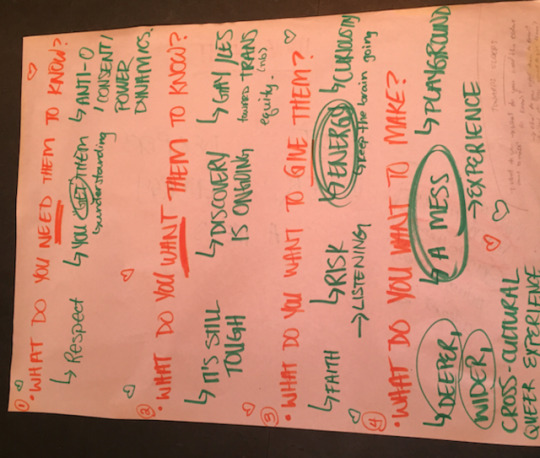 ① • WHAT DO YOU NEED THEM TO KNOW?
↳ Respect ↳ YOU GET THEM ↳ ANTI-O
↳ understanding / CONSENT /
POWER
DYNAMICS.
② • WHAT DO YOU WANT THEM TO KNOW?
↳ IT'S STILL ↳ DISCOVERY ↳ GAY/LES
TOUGH IS ONGOING toward TRANS
equity. (nb)
③ • WHAT DO YOU WANT TO GIVE THEM?
↳ FAITH ↳ RISK ↳ ENERGY ↳ CURIOSITY
→ LISTENING ↳ keep the brain going
④ • WHAT DO YOU WANT TO MAKE?
↳ DEEPER, ↳ A MESS ↳ PLAYGROUND
WIDER, → EXPERIENCE
CROSS-CULTURAL
QUEER EXPERIENCE